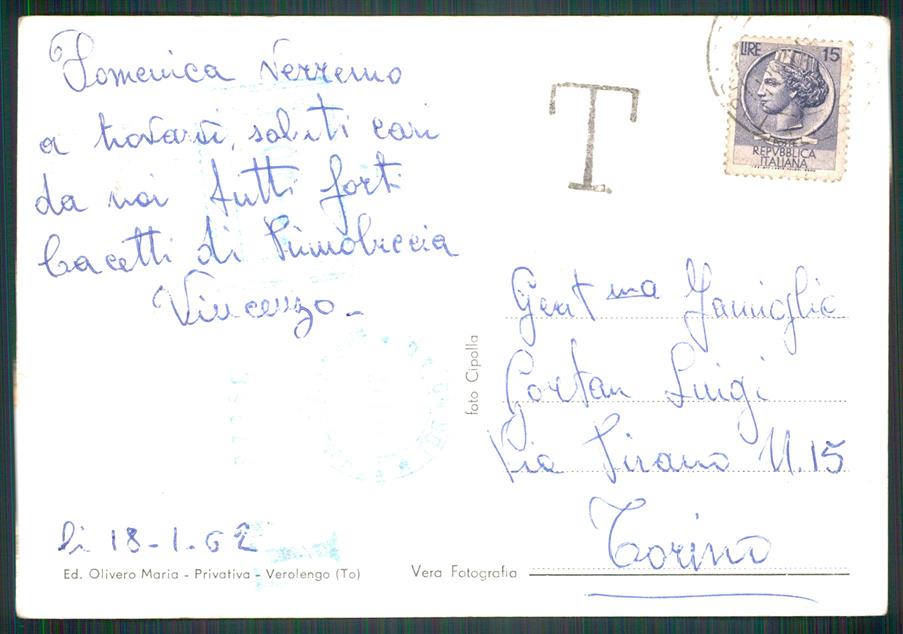 Domenica Verremo
a trovarvi, saluti cari
da noi tutti forti
bacetti di
Vincenzo.
li 18-1-62
Ed. Olivero Maria - Privativa - Verolengo (To)
foto Cipolla
Vera Fotografia
T
LIRE 15
REPVBBLICA
ITALIANA
Gent ma Famiglia
Gortan Luigi
Via Pirano N. 15
Torino